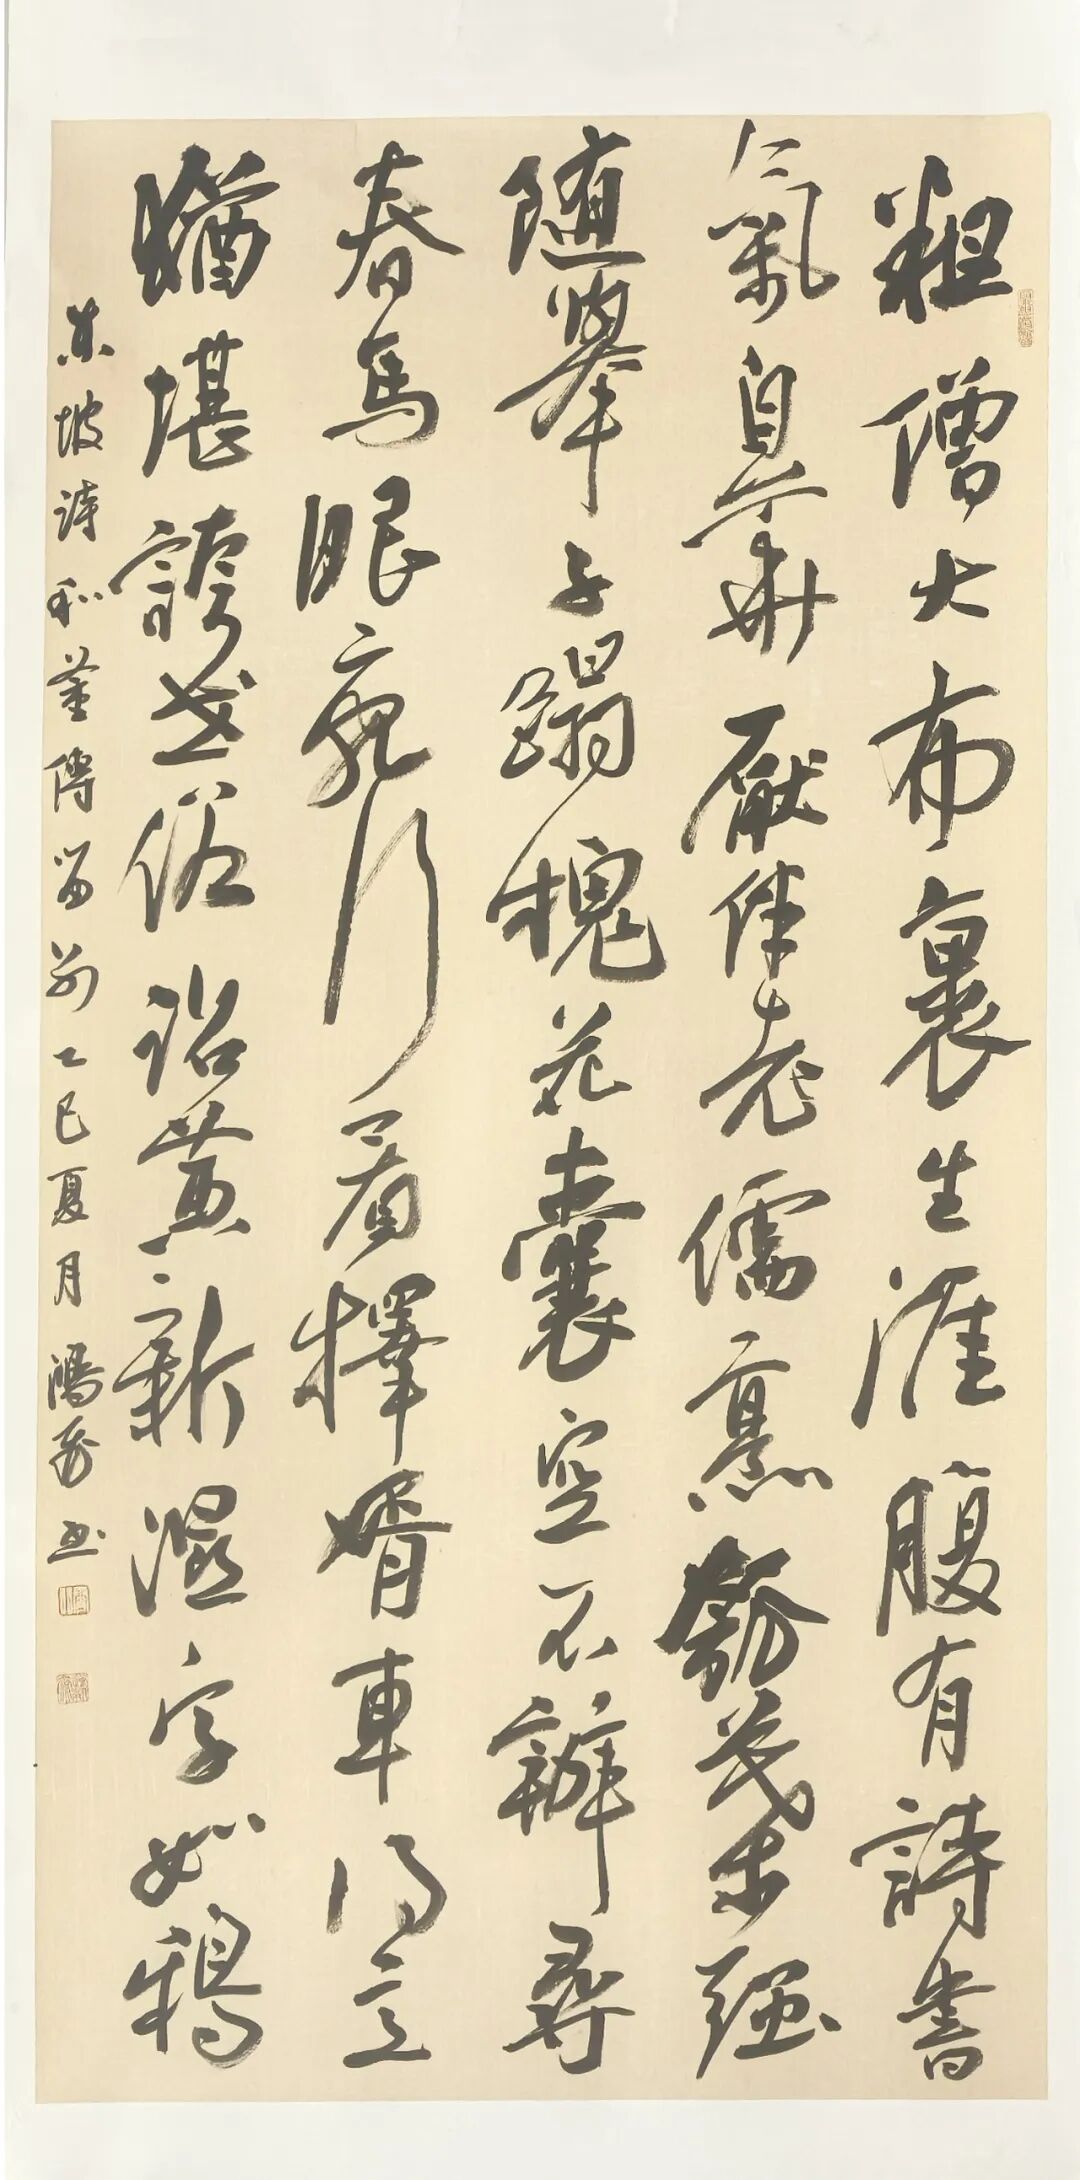 粗僧大布裹生涯腹有詩書
氣自華厭伴老儒烹瓠葉强
随舉子蹋槐花囊空不辦尋
春馬眼亂行看擇婿車得意
猶堪誇世俗詔黄新濕字如鴉
東坡詩和董傳留别乙巳夏月鴻書